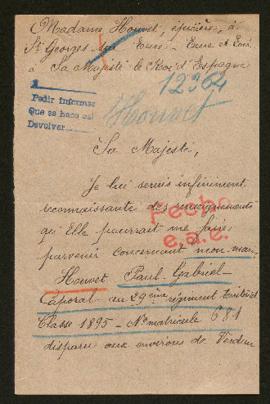 Madame Houvet, épicière, à
St Georges sur Eure - Eure et Loir
à Sa Majesté le Roi d'Espagne
12364
Pedir Informes
Que se hace así
Devolver
Houvet
Sa Majesté,
Je lui serais infiniment
reconnaissante des renseignements
qu'Elle pourrait me faire
parvenir concernant mon mari
Fecha
e.a.e.
Houvet Paul-Gabriel
Caporal au 29ème régiment territorial
Classe 1895 - No matricule 681
disparu aux environs de Verdun